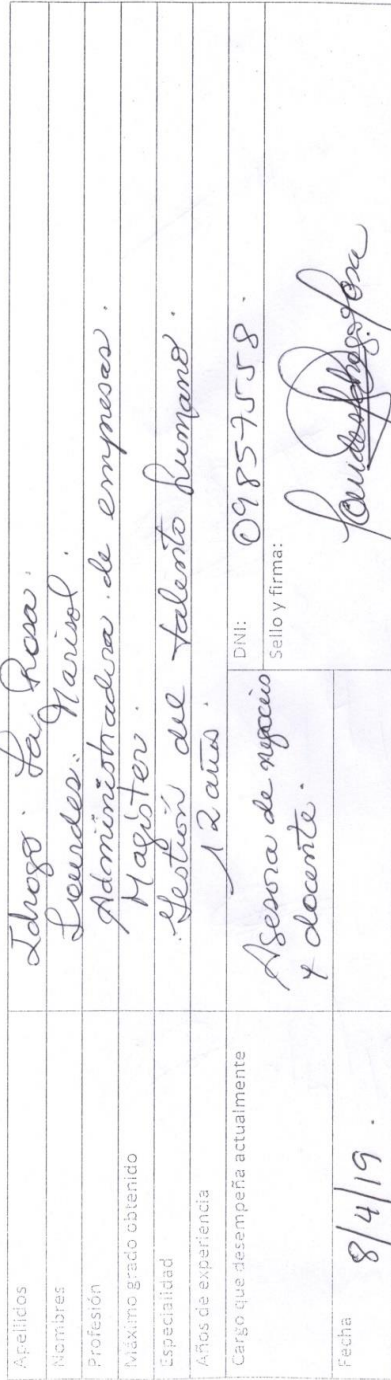 Apellidos Idrogo La Rosa.
Nombres Lourdes Marisol.
Profesión Administradora de empresas.
Máximo grado obtenido Magister.
Especialidad Gestión del talento humano.
Años de experiencia 12 años.
Cargo que desempeña actualmente Asesora de negocios
y docente.
DNI: 09857558.
Sello y firma:
Fecha 8/4/19.